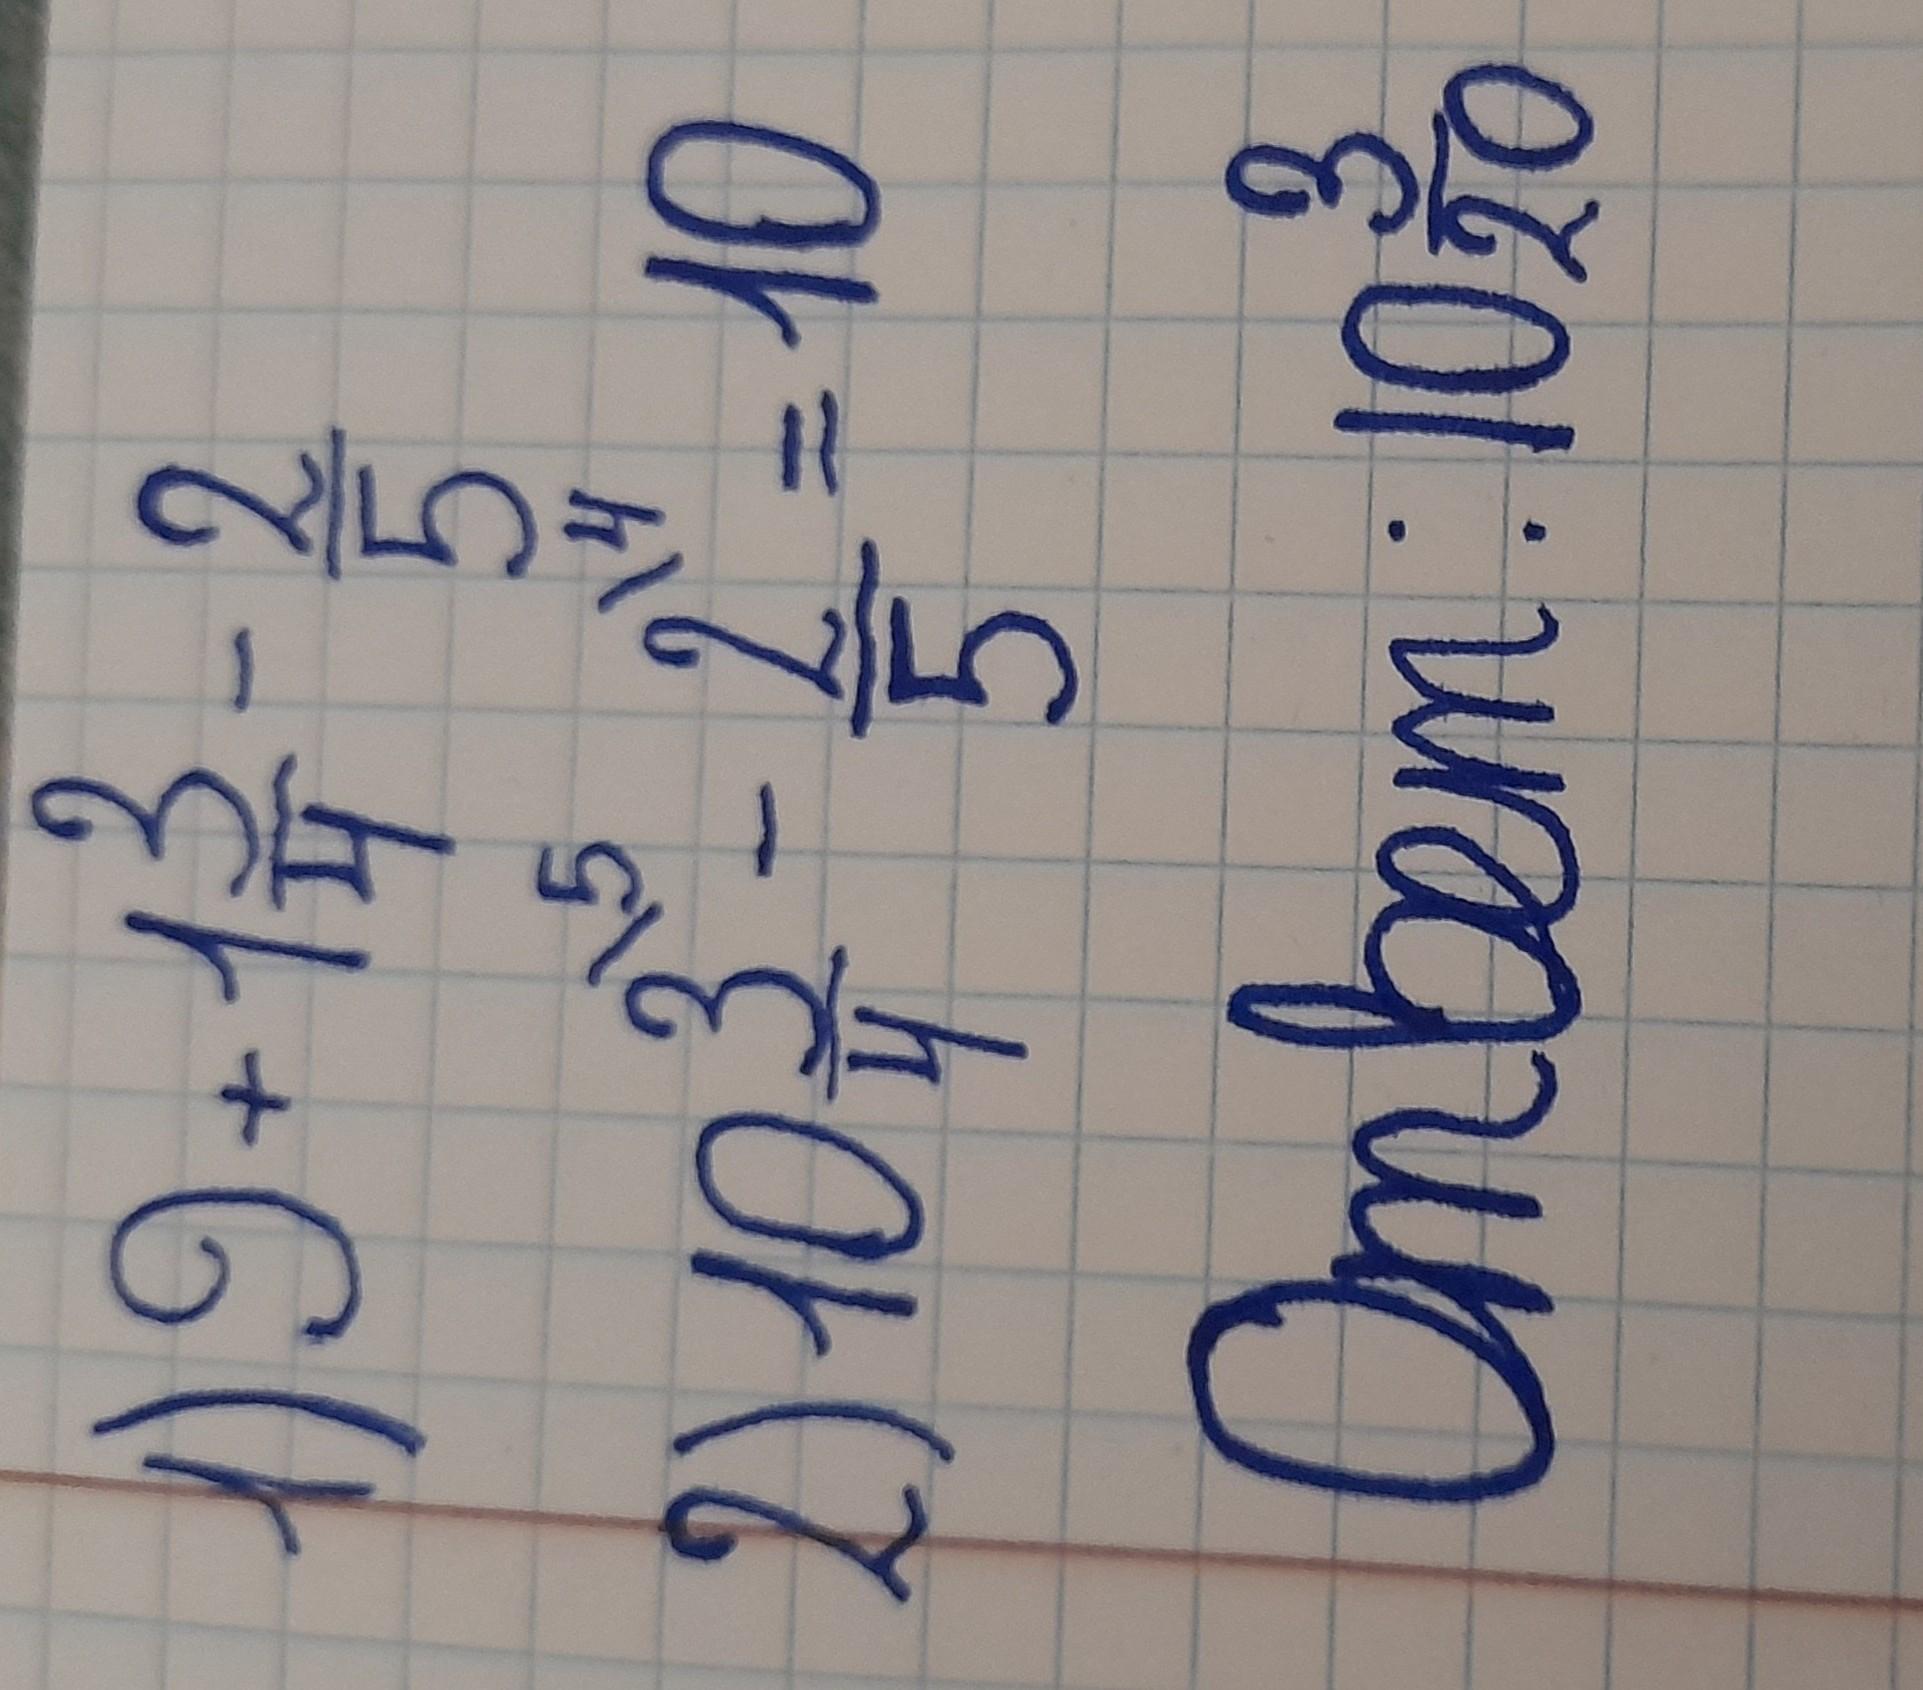 1) 9 + 1 3/4 - 2/5
2) 10 3\5/4 - 2\4/5 = 10
Ответ: 10 3/20